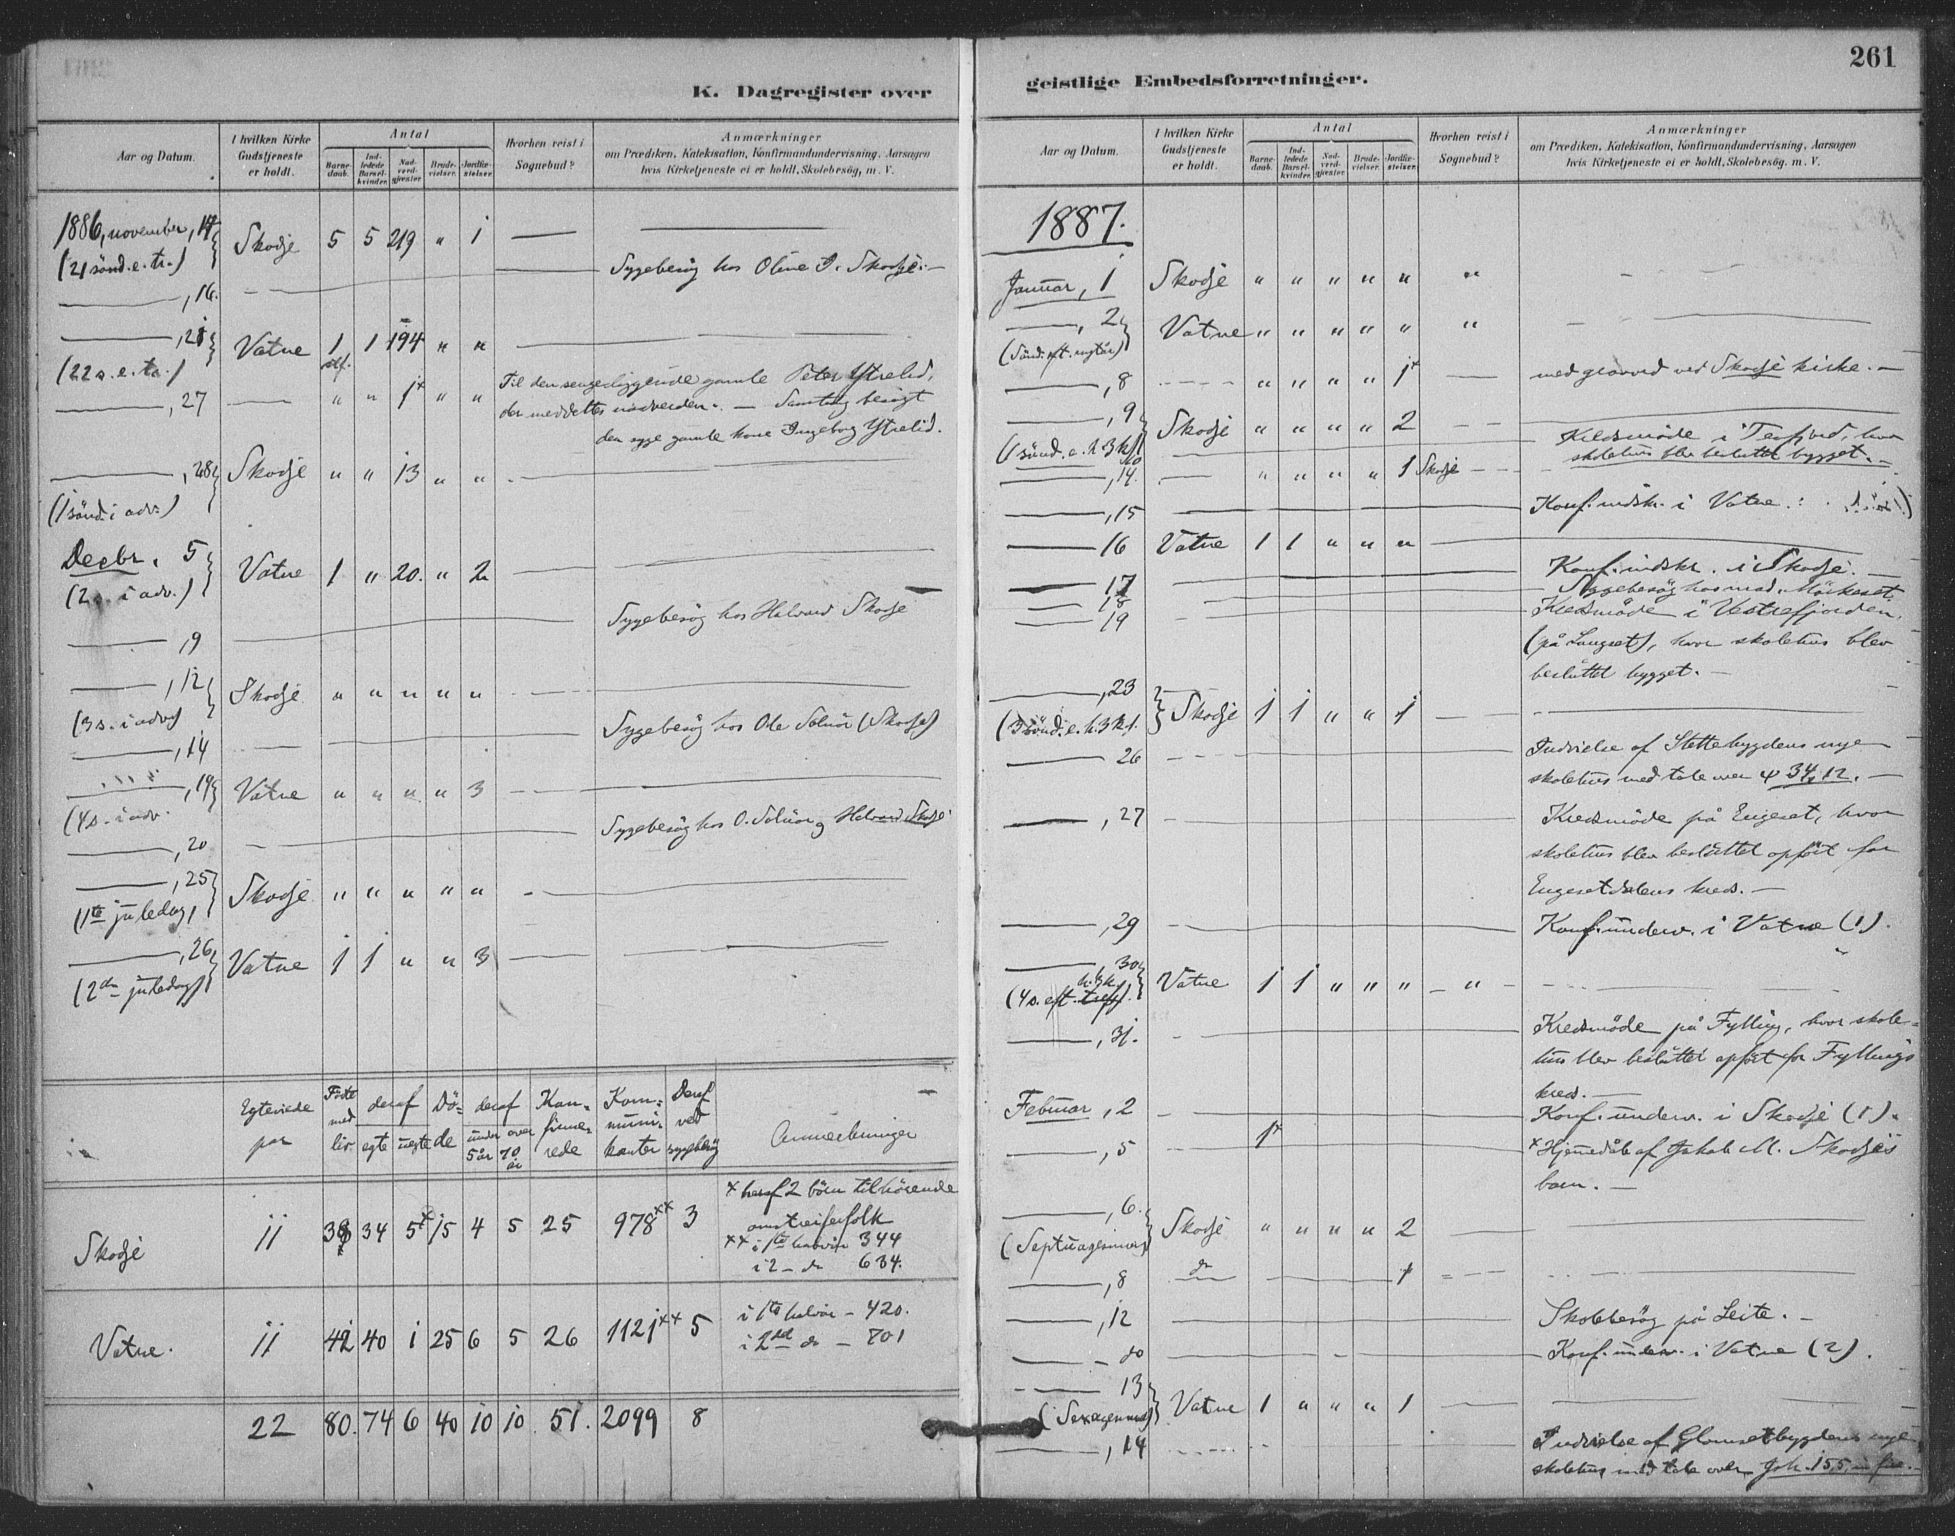 261
K. Dagregister over
geistlige Embedsforretninger.
Aar og Datum. I hvilken Kirke Gudstjeneste er holdt. Antal Barnedaab. Indledede Barselkvinder. Nadverdgjæster. Brudevielser. Jordfæstelser. Hvorhen reist i Sognebud? Anmærkninger
om Prædiken, Katekisation, Konfirmandundervisning, Aarsagen
hvis Kirketjeneste ei er holdt, Skolebesøg, m. V.
1886, november, 14 Skodje 5 5 219 " 1
(21 sønd. e. tr.)
16. Sygebesøg hos Oline Skodje.
21 Vatne 1 1 194 " "
(22 s. e. tr.)
27 " " 1x " " Til den sengeliggende gamle Peter Ytrelid,
der meddeltes nadverden. — Samtidig besøgt
den syge gamle kone Ingeborg Ytrelid.
28 Skodje " " 13 " "
(1 sønd. i adv.)
Decbr. 5 Vatne 1 " 20. " 2
(2 s. i adv.)
9 Sygebesøg hos Halvard Skodje
12 Skodje " " " " "
(3 s. i adv.)
14 Sygebesøg hos Ole Solnør (Skodje)
19 Vatne " " " " 3
(4 s. i adv.
20 Sygebesøg hos O. Solnør og Halvard Skodje
25 Skodje " " " " "
(1te juledag)
26 Vatne 1 1 " " 3
(2den juledag)
Egteviede par Fødte med liv. deraf egte uegte Døde deraf under 5 år over 70 år Konfirmerede Kommunikanter Deraf ved sygebesøg Anmærkninger
Skodje 11 39 34 5x 15 4 5 25 978xx 3 x heraf 2 børn tilhørende
omstreiferfolk
xx i 1te halvår 344
i 2 - do 634.
Vatne. 11 41 40 1 25 6 5 26 1121xx 5 i 1te halvår – 420.
i 2det do – 701
22 80. 74 6 40 10 10 51. 2099 8
Aar og Datum. I hvilken Kirke Gudstjeneste er holdt. Antal Barnedaab. Indledede Barselkvinder. Nadverdgjæster. Brudevielser. Jordfæstelser. Hvorhen reist i Sognebud? Anmærkninger
om Prædiken, Katekisation, Konfirmandundervisning, Aarsagen
hvis Kirketjeneste ei er holdt, Skolebesøg, m. V.
1887.
Januar, 1 Skodje " " " " " "
2 Vatne " " " " " "
(Sønd. eft. nytår)
8 " " " " 1x med gravøl ved Skodje kirke. —
9 Skodje " " " " 2
(1 sønd. e. h. 3 k.) Kredsmøde i Tenfjord, hvor
skolehus blev besluttet bygget. —
14. " " " " 1 Skodje
15 Konf. indskr. i Vatne.
16 Vatne 1 1 " " "
17 Konf. indskr. i Skodje. —
18 Sygebesøg hos mad. Mørkeset.
19 Kredsmøde i Vestrefjorden,
(på Langset), hvor skolehus blev
besluttet bygget. —
23 Skodje 1 1 " " 1
(3 sønd. e. h. 3 k.)
26 Indvielse af Stettebygdens nye
skolehus med tale over ψ 34, 12. —
27 Kredsmøde på Engeset, hvor
skolehus blev besluttet opført for
Engesetdalens kreds. —
29 Konf. underv. i Vatne (1).
30 Vatne 1 1 " " " "
(4 s. eft. h. 3 k.)
31. Kredsmøde på Fylling, hvor skole-
hus blev besluttet opført for Fyllings
kreds. —
Februar, 2 Konf. underv. i Skodje (1).
5 1x x Hjemmedåb af Jakob M. Skodjes
barn. —
6. Skodje " " " " 2
(Septuagesima)
8 do 1
12 Skolebesøg på Leite. —
do Konf. underv. i Vatne (2).
13 Vatne 1 " " " 1
(Sexagesima)
14 Indvielse af Glomsetbygdens nye
skolehus med tale over Joh. 15, 5